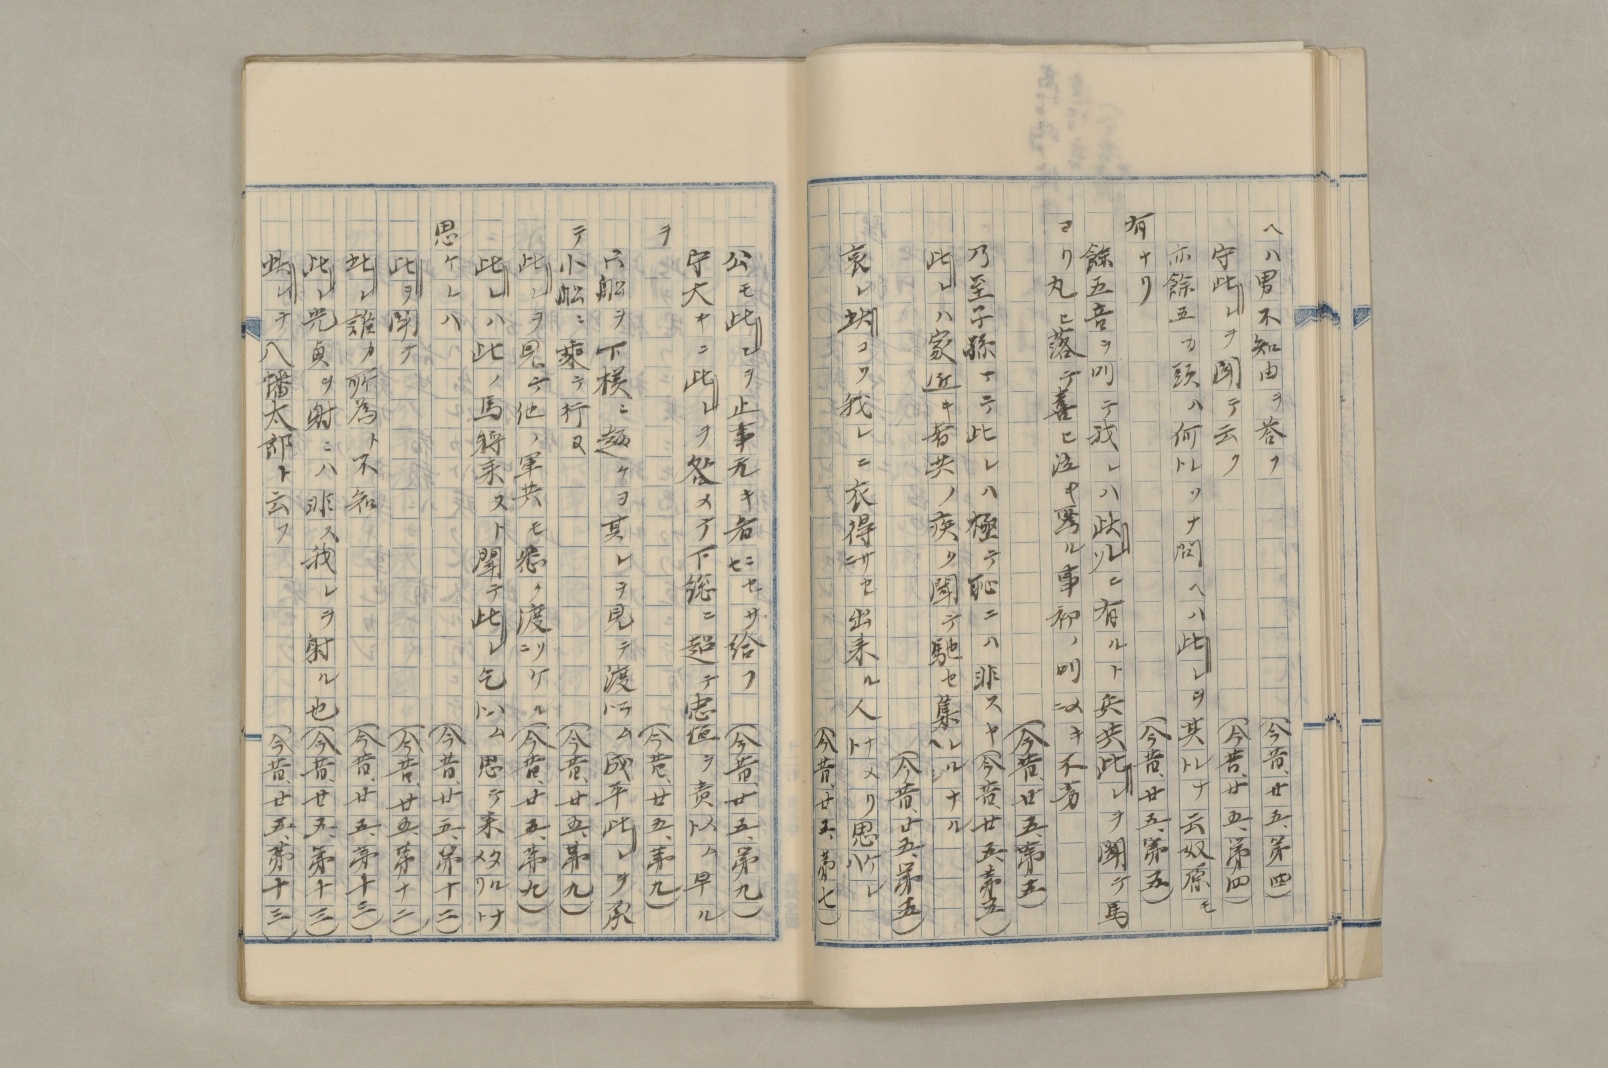 ヘハ男不知由ヲ答フ（今昔、廿五、第四）
守此レヲ聞テ云ク（今昔、廿五、第四）
亦餘五カ頭ハ何トレノナ問ヘハ此レヲ其トルナ云奴原モ
有ナリ（今昔、廿五、第五）
餘五音ヲ叫テ我レハ此ソレニ有ルト兵共此レヲ聞テ馬
ヨリ丸ヒ落テ喜ヒ泣キ罵ル事初ノ叫メキ不劣
（今昔、廿五、第五）
乃至子孫マテ此レハ極テ恥ニハ非スヤ（今昔、廿五、第五
此レハ家近キ者共ノ疾ク聞テ馳セ集レルナル
（今昔、廿五、第五）
哀レ此コソ我レニ衣得サセニ出来ル人ナメリト思ケレハ
（今昔、廿五、第七）
公モ此レヲ止事无キ者ニセサセ給フ（今昔、廿五、第九）
守大キニ此レヲ咎メテ下総ニ超テ忠恒ヲ責ムト以早ル
ヲ（今昔、廿五、第九）
只船ヲ下様ニ趣ケヨ其レヲ見テ渡ラム以成平此レヲ承
テ小船ニ乗テ行ヌ（今昔、廿五、第九）
此レヲ見テ他ノ軍共モ悉ク渡リニケル（今昔、廿五、第九）
此レハ此ノ馬将来ヌト聞テ此レ乞ハム以思テ来タルメリトナ
思ケレハ（今昔、廿五、第十二）
此ヲ聞テ（今昔、廿五、第十二）
此レ誰カ所為ト不知（今昔、廿五、第十三）
此レ光貞ヲ射ニハ非ス我レヲ射ル也（今昔、廿五、第十三）
此レヲ八幡太郎ト云フ（今昔、廿五、第十三）